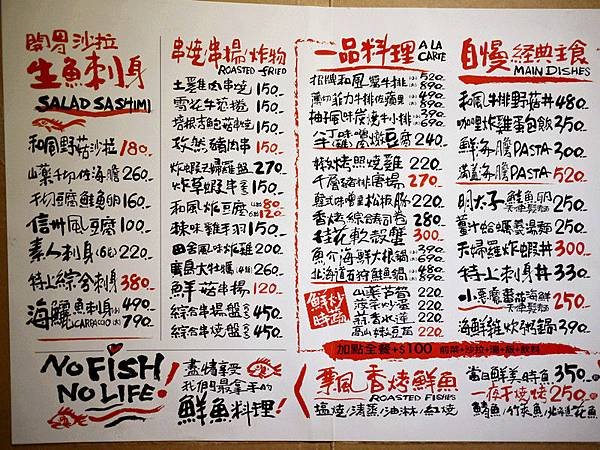 開胃沙拉
生魚刺身
SALAD SASHIMI
和風野菇沙拉 180.-
山藥千切佐海膽 260.-
千切豆腐鮭魚卵 160.-
信州風豆腐 100.-
素人刺身(6p) 220.-
特上綜合刺身 380.-
海鱺魚刺身(小) 490.-
CARPACCIO(大) 790.-
串燒/串揚/炸物
ROASTED FRIED
土雞肉串燒 150.-
雪花牛 150.-
培根杏鮑菇串燒 150.-
豬肉串 150.-
炸蝦天婦羅盤 270.-
炸草蝦串 150.-
和風炸豆腐 小80 大120
辣味雞羽 150.-
田舍風味炸雞 200.-
廣島大牡蠣 260.-
鮮菇串揚 120.-
綜合串揚盤 450.-
綜合串燒盤 450.-
一品料理 A LA CARTE
招牌和風 牛排 (小)520.- (大)890.-
薄切菲力牛排佐蘋果 (小)490.- (大)890.-
柚香風味炭燒牛小排 (小)390.- (大)690.-
八丁味噌 燉豆腐 240.-
照燒雞 220.-
千層豬排 270.-
韓式味噌 松板豚 220.-
香烤綜合時司卷 280.-
桂花軟殼蟹 300.-
魚介海鮮大根鍋 (小)390.- (大)690.-
北海道石狩鮭魚鍋 (小)390.- (大)690.-
鮮炒時蔬
山藥 220.-
220.-
蒜香水蓮 220.-
高山娃娃菜 220.-
自慢經典主食
MAIN DISHES
和風牛排野菇丼 480.-
咖哩炸雞蛋包飯 350.-
鮮海膽 PASTA 300.-
海膽 PASTA 520.-
明太子鮭魚卵天使髮麵 250.-
薑汁蛤蠣蕎湯麵 250.-
天婦羅炸蝦丼 300.-
特上刺身丼 330.-
小惡魔蕃茄海鮮天使髮麵 250.-
海鮮雜炊粥鍋 390.-
加點全餐+$100 前菜+沙拉+湯+飯+飲料
NO FISH
NO LIFE!
盡情享受
我們最拿手的
鮮魚料理!
季風香烤鮮魚
ROASTED FISHES
鹽燒/清蒸/油淋/紅燒
當日鮮美時魚 350.-
一夜干燒烤 250.-
鯖魚/竹筴魚/北海道花魚